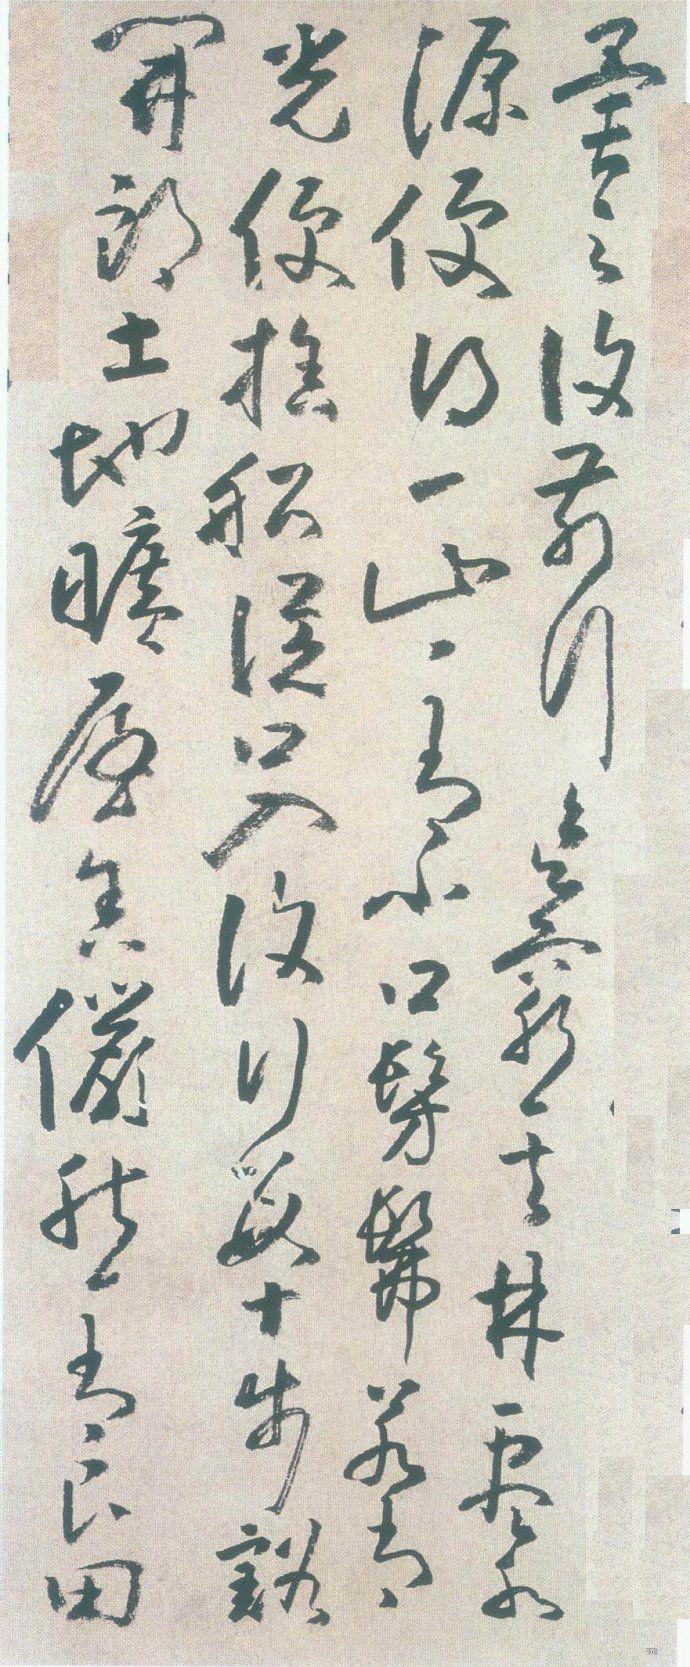 異之復前行林盡水
源便得一山山有小口髣髴若有
光便捨船從口入復行數十步豁
開朗土地曠屋舍儼然有良田